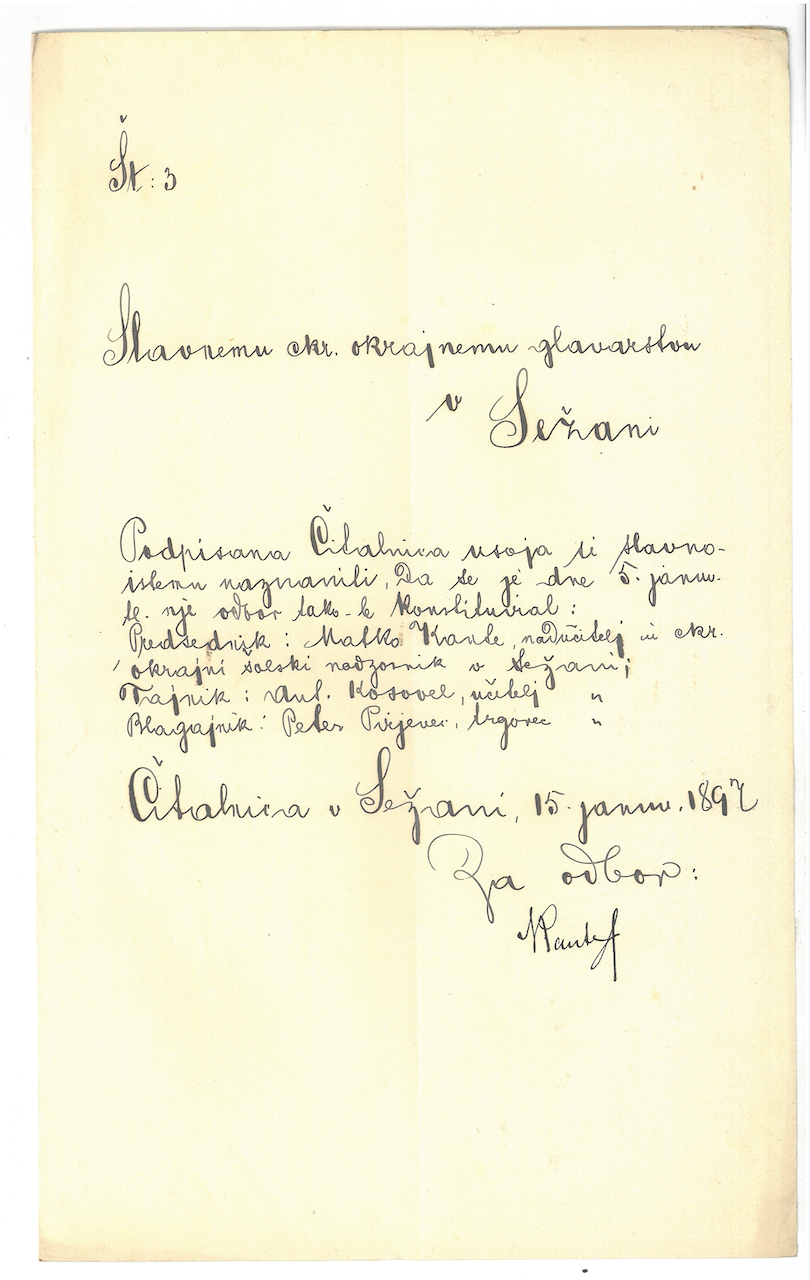 Št: 3
Slavnemu ckr. okrajnemu glavarstvu
v
Sežani
Podpisana Čitalnica usoja si slavno-
istemu naznaniti, Da se je dne 5. januv.
t.l. nje odbor tako-le konstituviral:
Predsednik: Matko Kante, nadučitelj in ckr.
okrajni šolski nadzornik v Sežani;
Tajnik: Ant. Kosovel, učitelj "
Blagajnik: Peter Pirjevec, trgovec "
Čitalnica v Sežani, 15. januv. 1897
Za odbor:
MKante